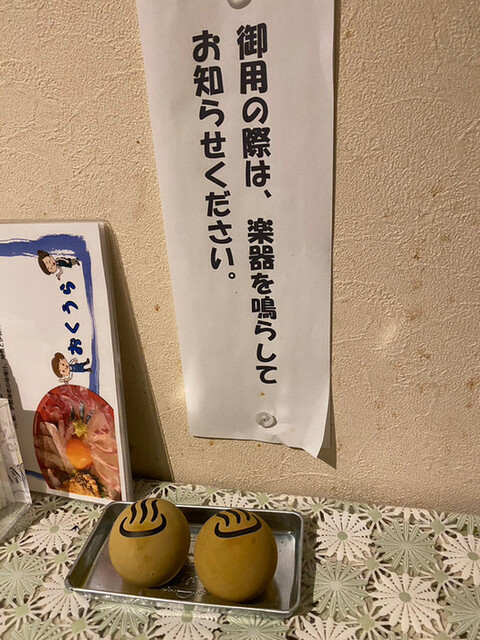 御用の際は、楽器を鳴らして
お知らせください。
おくうら